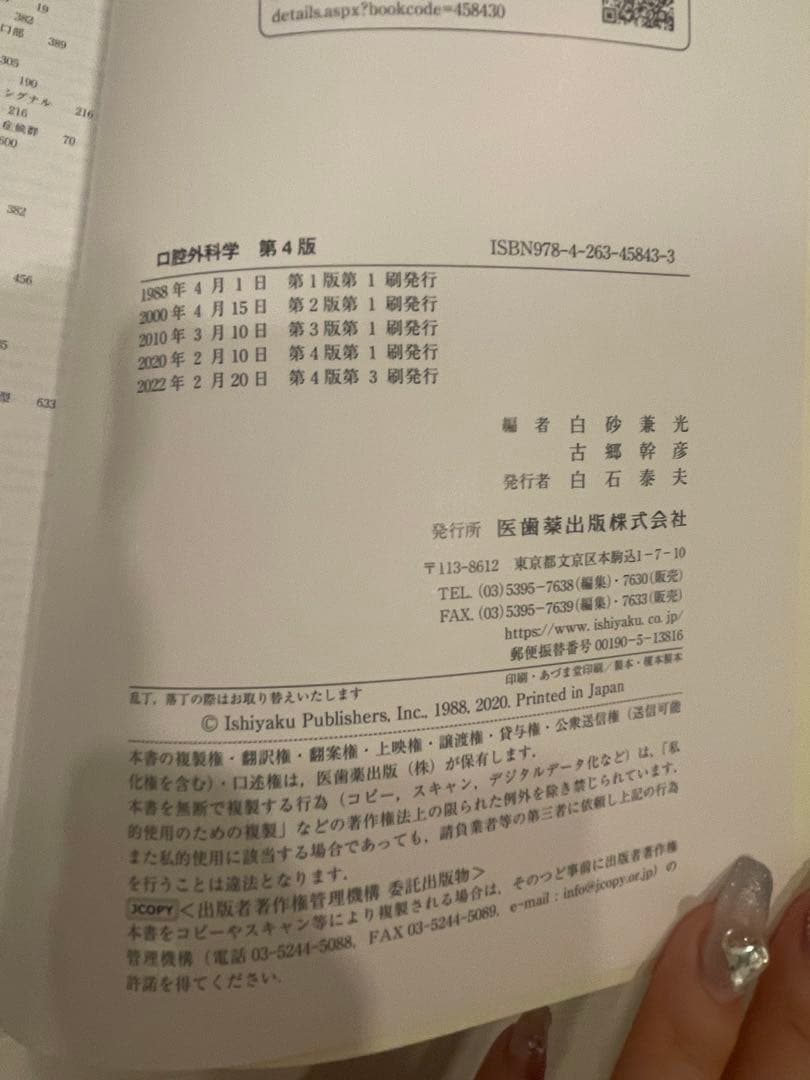 19
382
口部
389
305
190
シグナル
216
216
症候群
70
600
382
456
型
633
details.aspx?bookcode=458430
口腔外科学　第4版
ISBN978-4-263-45843-3
1988年4月1日　第1版第1刷発行
2000年4月15日　第2版第1刷発行
2010年3月10日　第3版第1刷発行
2020年2月10日　第4版第1刷発行
2022年2月20日　第4版第3刷発行
編者　白砂兼光
古郷幹彦
発行者　白石泰夫
発行所　医歯薬出版株式会社
〒113-8612　東京都文京区本駒込1-7-10
TEL. (03)5395-7638(編集)・7630(販売)
FAX. (03)5395-7639(編集)・7633(販売)
https://www.ishiyaku.co.jp/
郵便振替番号 00190-5-13816
乱丁，落丁の際はお取り替えいたします
印刷・あづま堂印刷／製本・榎本製本
© Ishiyaku Publishers, Inc., 1988, 2020. Printed in Japan
本書の複製権・翻訳権・翻案権・上映権・譲渡権・貸与権・公衆送信権（送信可能
化権を含む）・口述権は，医歯薬出版（株）が保有します．
本書を無断で複製する行為（コピー，スキャン，デジタルデータ化など）は，「私
的使用のための複製」などの著作権法上の限られた例外を除き禁じられています．
また私的使用に該当する場合であっても，請負業者等の第三者に依頼し上記の行為
を行うことは違法となります．
JCOPY＜出版者著作権管理機構 委託出版物＞
本書をコピーやスキャン等により複製される場合は，そのつど事前に出版者著作権
管理機構（電話 03-5244-5088，FAX 03-5244-5089，e-mail：info@jcopy.or.jp）の
許諾を得てください．